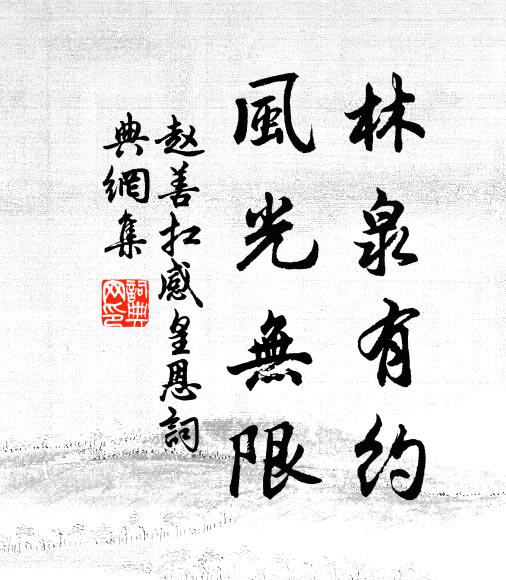 林泉有約
風光無限
赵善扛感皇恩詞
典網集
詞典
网印